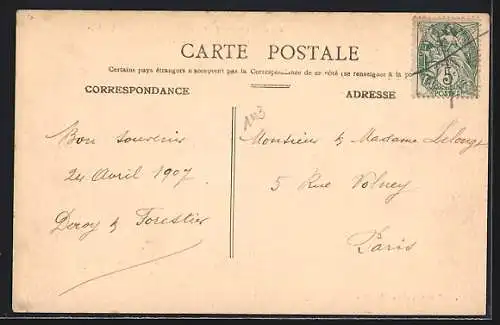 CARTE POSTALE
Certains pays étrangers n'acceptent pas la Correspondance de ce côté (se renseigner à la po
CORRESPONDANCE
ADRESSE
5
POSTES
Bon souvenir
Avril 1907
Deroy & Forestier
Monsieur & Madame Lelong
5 Rue Volney
Paris